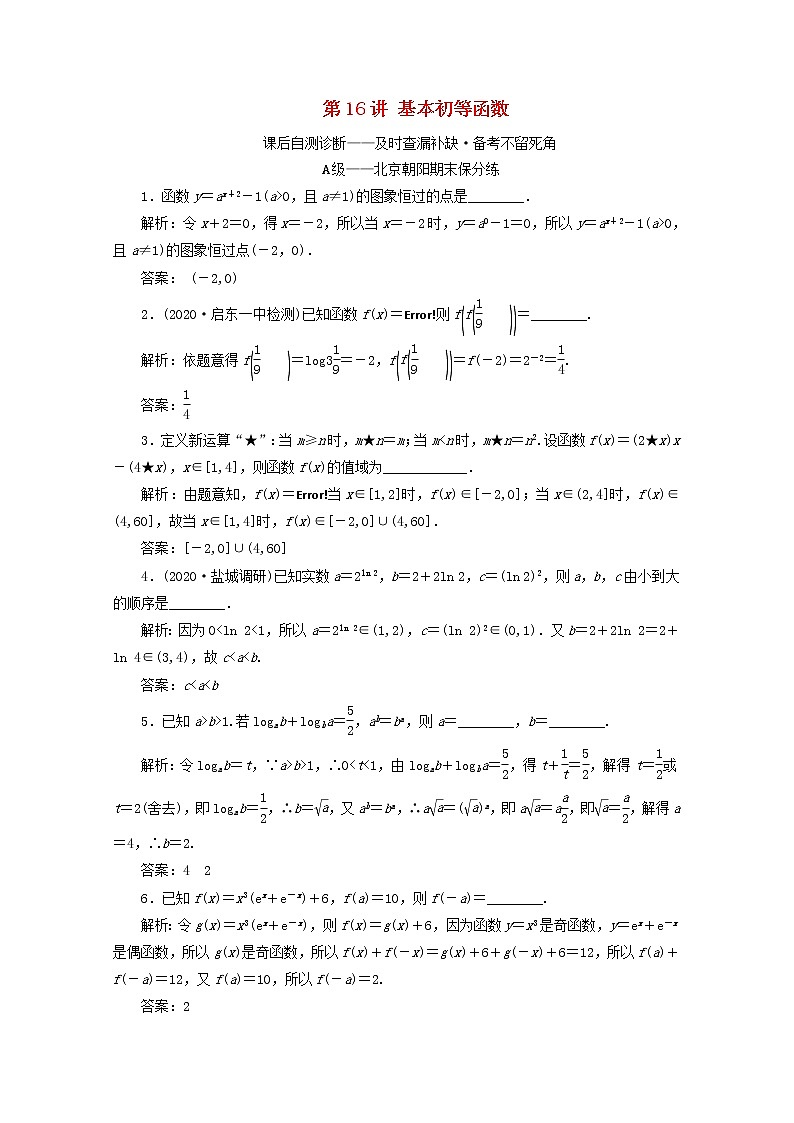 第16讲 基本初等函数
课后自测诊断——及时查漏补缺·备考不留死角
A级——北京朝阳期末保分练
1.函数y=aˣ⁺²-1(a>0,且a≠1)的图象恒过的点是________.
解析:令x+2=0,得x=-2,所以当x=-2时,y=a⁰-1=0,所以y=aˣ⁺²-1(a>0,
且a≠1)的图象恒过点(-2,0).
答案: (-2,0)
2.(2020·启东一中检测)已知函数f(x)=Error!则f(f(1/9))=________.
解析:依题意得f(1/9)=log3 1/9=-2,f(f(1/9))=f(-2)=2⁻²=1/4.
答案:1/4
3.定义新运算“★”:当m≥n时,m★n=m;当m<n时,m★n=n².设函数f(x)=(2★x)x
-(4★x),x∈[1,4],则函数f(x)的值域为____________.
解析:由题意知,f(x)=Error!当x∈[1,2]时,f(x)∈[-2,0];当x∈(2,4]时,f(x)∈
(4,60],故当x∈[1,4]时,f(x)∈[-2,0]∪(4,60].
答案:[-2,0]∪(4,60]
4.(2020·盐城调研)已知实数a=2^(ln 2),b=2+2ln 2,c=(ln 2)²,则a,b,c由小到大
的顺序是________.
解析:因为0<ln 2<1,所以a=2^(ln 2)∈(1,2),c=(ln 2)²∈(0,1).又b=2+2ln 2=2+
ln 4∈(3,4),故c<a<b.
答案:c<a<b
5.已知a>b>1.若logₐb+log_b a=5/2,aᵇ=bᵃ,则a=________,b=________.
解析:令logₐb=t,∵a>b>1,∴0<t<1,由logₐb+log_b a=5/2,得t+1/t=5/2,解得t=1/2或
t=2(舍去),即logₐb=1/2,∴b=√a,又aᵇ=bᵃ,∴a√a=(√a)ᵃ,即a√a=a a/2,即√a=a/2,解得a
=4,∴b=2.
答案:4 2
6.已知f(x)=x³(eˣ+e⁻ˣ)+6,f(a)=10,则f(-a)=________.
解析:令g(x)=x³(eˣ+e⁻ˣ),则f(x)=g(x)+6,因为函数y=x³是奇函数,y=eˣ+e⁻ˣ
是偶函数,所以g(x)是奇函数,所以f(x)+f(-x)=g(x)+6+g(-x)+6=12,所以f(a)+
f(-a)=12,又f(a)=10,所以f(-a)=2.
答案:2